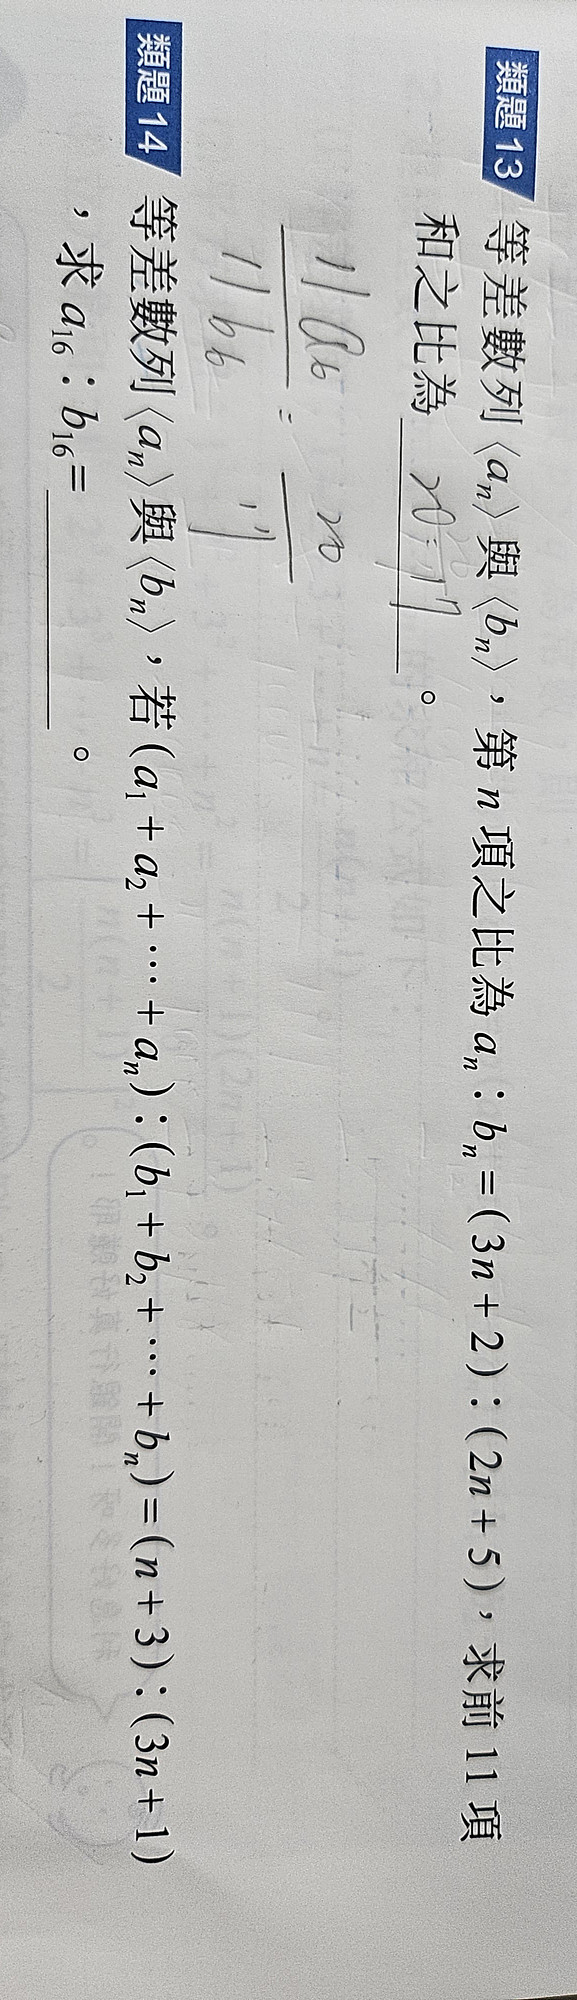 類題13
等差數列⟨aₙ⟩與⟨bₙ⟩，第 n 項之比為 aₙ：bₙ＝(3n＋2)：(2n＋5)，求前 11 項
和之比為 20:17 。
11a₆
11b₆
=
20
17
類題14
等差數列⟨aₙ⟩與⟨bₙ⟩，若(a₁＋a₂＋⋯＋aₙ)：(b₁＋b₂＋⋯＋bₙ)＝(n＋3)：(3n＋1)
，求 a₁₆：b₁₆＝ 。